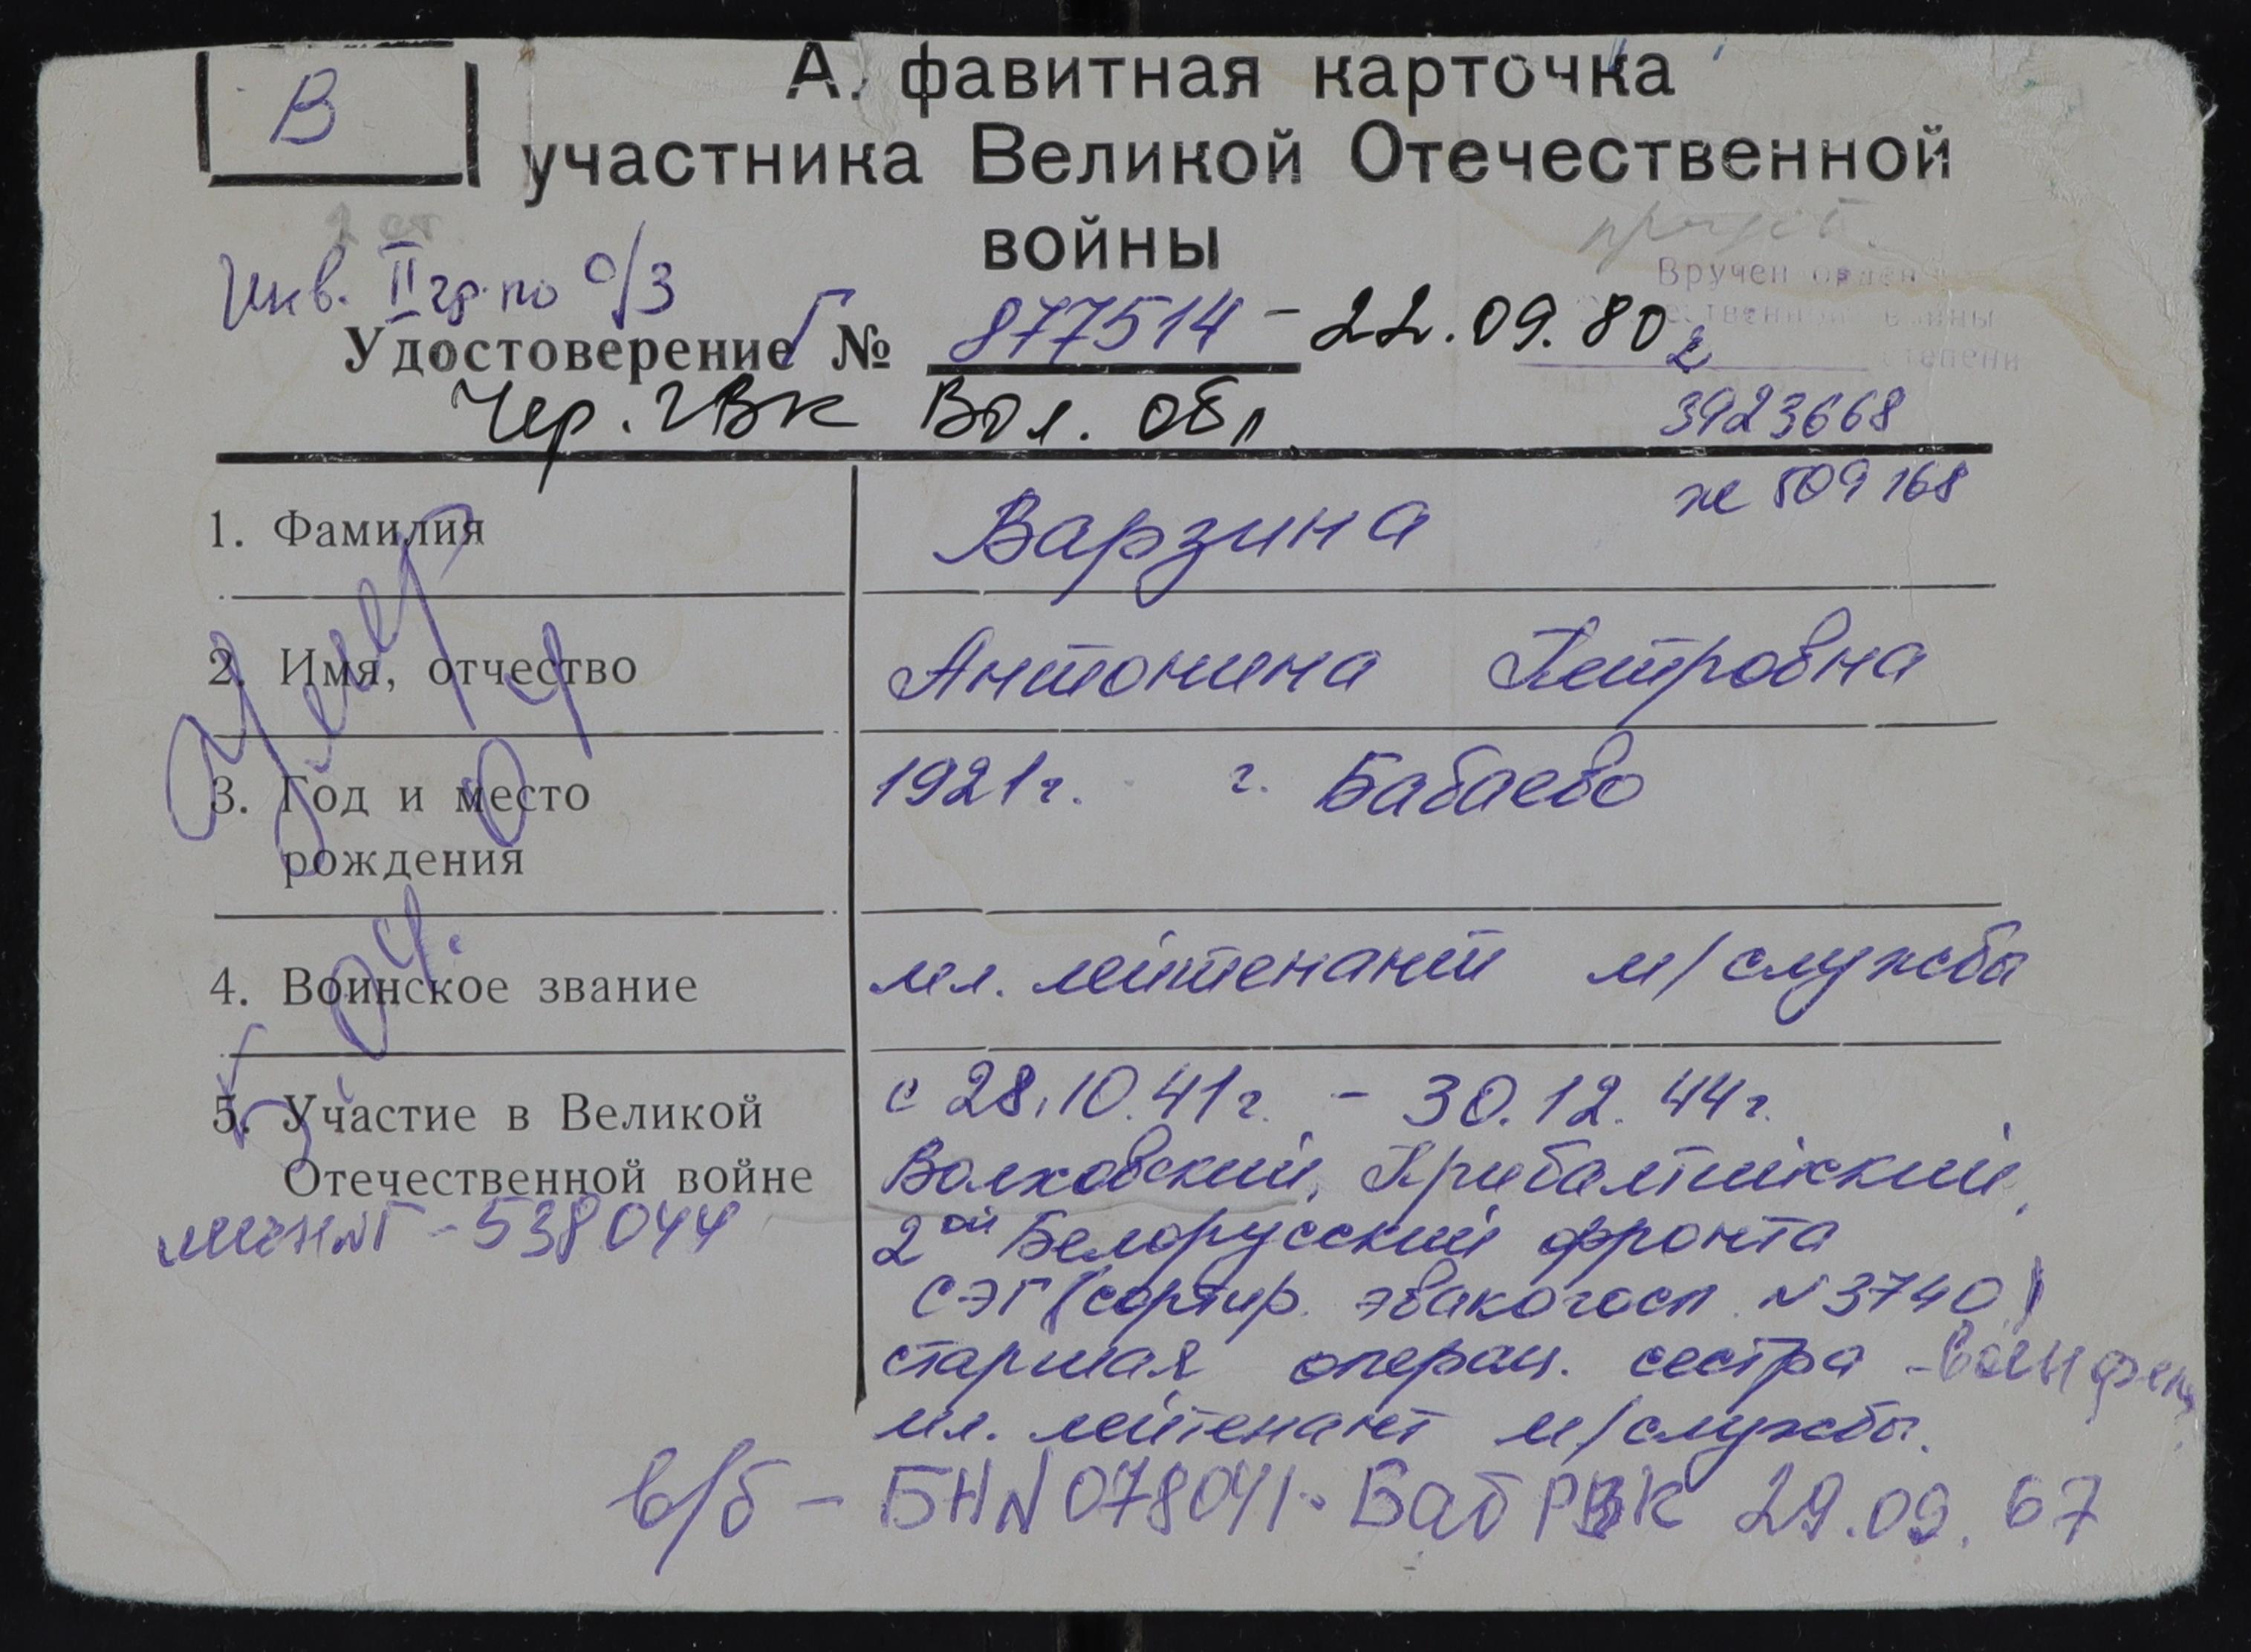 В
А. фавитная карточка
участника Великой Отечественной
войны
2 ст.
Инв. II гр. по о/з
Вручен орден
ественной войны
2 степени
Удостоверение № Г 877514 - 22.09.80
Чер. ГВК Вол. обл.
3923668
ж 509168
1. Фамилия Варзина
2. Имя, отчество Антонина Петровна
3. Год и место рождения 1921г. г. Бабаево
Умер
04
04.
4. Воинское звание мл. лейтенант м/службы
5. Участие в Великой Отечественной войне
с 28.10.41г. - 30.12.44г.
Волховский, Прибалтийский,
2ой Белорусский фронта
СЭГ (сортир. эвакогосп. N 3740)
старшая операц. сестра
мл. лейтенант м/службы.
538044
в/б - БН N 078041. Баб РВК 29.09.67